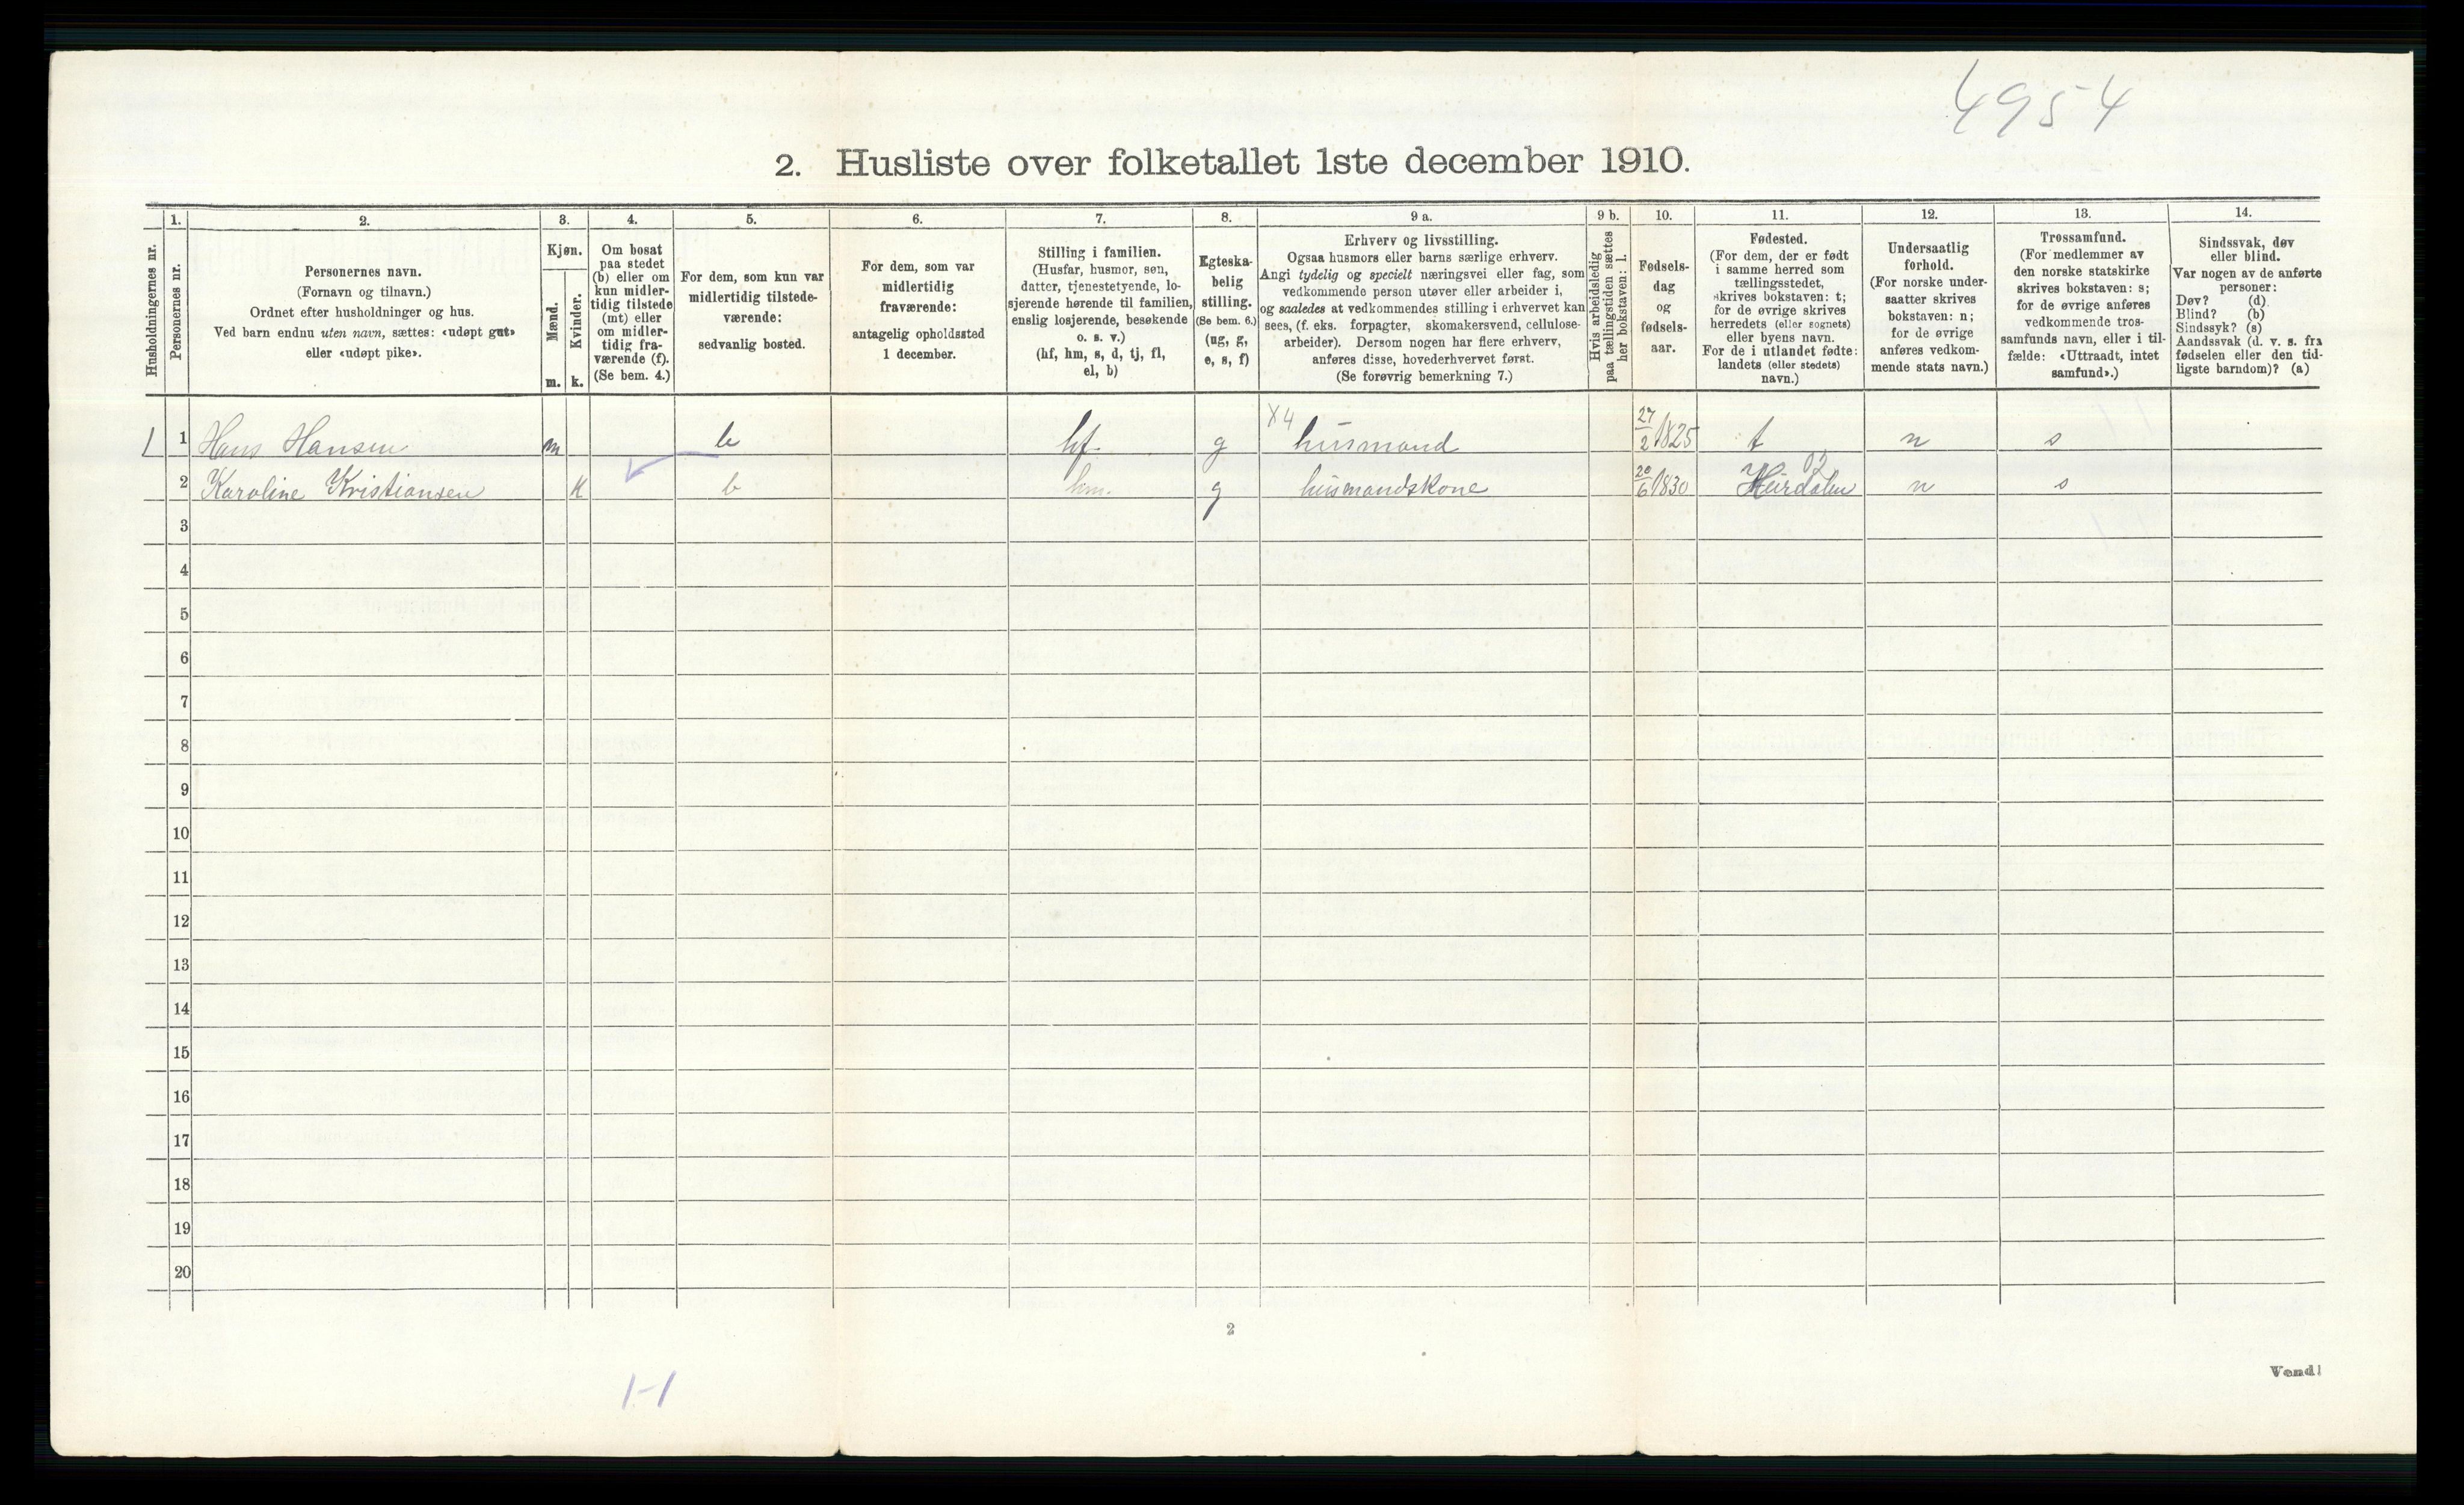 4954
2. Husliste over folketallet 1ste december 1910.
Husholdningernes nr.
1. Personernes nr.
2. Personernes navn.
(Fornavn og tilnavn.)
Ordnet efter husholdninger og hus.
Ved barn endnu uten navn, sættes: «udøpt gut»
eller «udøpt pike».
3. Kjøn.
Mænd. m.
Kvinder. k.
4. Om bosat
paa stedet
(b) eller om
kun midler-
tidig tilstede
(mt) eller
om midler-
tidig fra-
værende (f).
(Se bem. 4.)
5. For dem, som kun var
midlertidig tilstede-
værende:
sedvanlig bosted.
6. For dem, som var
midlertidig
fraværende:
antagelig opholdssted
1 december.
7. Stilling i familien.
(Husfar, husmor, søn,
datter, tjenestetyende, lo-
sjerende hørende til familien,
enslig losjerende, besøkende
o. s. v.)
(hf, hm, s, d, tj, fl,
el, b)
8. Egteska-
belig
stilling.
(Se bem. 6.)
(ug, g,
e, s, f)
9 a. Erhverv og livsstilling.
Ogsaa husmors eller barns særlige erhverv.
Angi tydelig og specielt næringsvei eller fag, som
vedkommende person utøver eller arbeider i,
og saaledes at vedkommendes stilling i erhvervet kan
sees, (f. eks. forpagter, skomakersvend, cellulose-
arbeider). Dersom nogen har flere erhverv,
anføres disse, hovederhvervet først.
(Se forøvrig bemerkning 7.)
9 b. Hvis arbeidsledig
paa tællingstiden sættes
her bokstaven: l.
10. Fødsels-
dag
og
fødsels-
aar.
11. Fødested.
(For dem, der er født
i samme herred som
tællingsstedet,
skrives bokstaven: t;
for de øvrige skrives
herredets (eller sognets)
eller byens navn.
For de i utlandet fødte:
landets (eller stedets)
navn.)
12. Undersaatlig
forhold.
(For norske under-
saatter skrives
bokstaven: n;
for de øvrige
anføres vedkom-
mende stats navn.)
13. Trossamfund.
(For medlemmer av
den norske statskirke
skrives bokstaven: s;
for de øvrige anføres
vedkommende tros-
samfunds navn, eller i til-
fælde: «Uttraadt, intet
samfund».)
14. Sindssvak, døv
eller blind.
Var nogen av de anførte
personer:
Døv? (d)
Blind? (b)
Sindssyk? (s)
Aandssvak (d. v. s. fra
fødselen eller den tid-
ligste barndom)? (a)
X4
1 1 Hans Hansen m b hf. g husmand 27/2 1825 t n s
2 Karoline Kristiansen k b hm. g husmandskone 20/6 1830 Hurdalen n s
3
4
5
6
7
8
9
10
11
12
13
14
15
16
17
18
19
20
2
Vend!
1-1